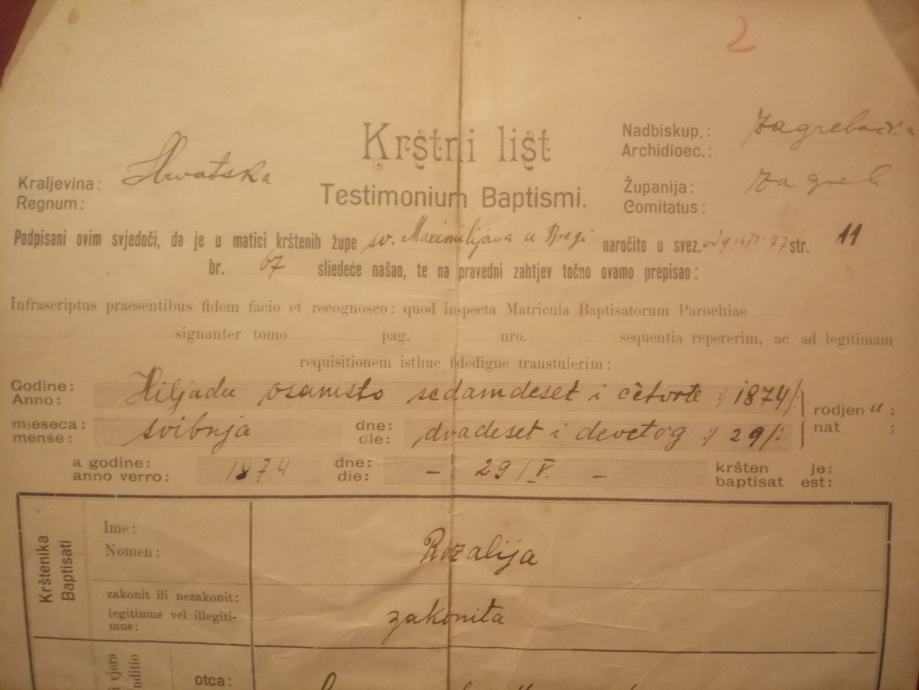 2
Krštni list
Testimonium Baptismi.
Kraljevina: Hrvatska
Regnum:
Nadbiskup.: Zagrebačka
Archidioec.:
Županija: Zagreb
Comitatus:
Podpisani ovim svjedoči, da je u matici krštenih župe sv. Maximilijana u naročito u svez. str. 11
br. 67 sliedeće našao, te na pravedni zahtjev točno ovamo prepisao:
Infrascriptus praesentibus fidem facio et recognosco: quod inspecta Matricula Baptisatorum Parochiae
signanter tomo pag. nro. sequentia repererim, ac ad legitimam
requisitionem isthuc fidedigne transtulerim:
Godine: Hiljadu osamsto sedamdeset i četvrte /: 1874 :/
Anno:
rodjen a ;
nat ;
mjeseca: svibnja dne: dvadeset i devetog /: 29 :/
mense: die:
a godine: 1874 dne: - 29/V. - kršten je:
anno verro: die: baptisat est:
Krštenika
Baptisati
Ime:
Nomen: Rozalija
zakonit ili nezakonit:
legitimus vel illegiti-
mus: zakonita
i vjera
nditio
otca: